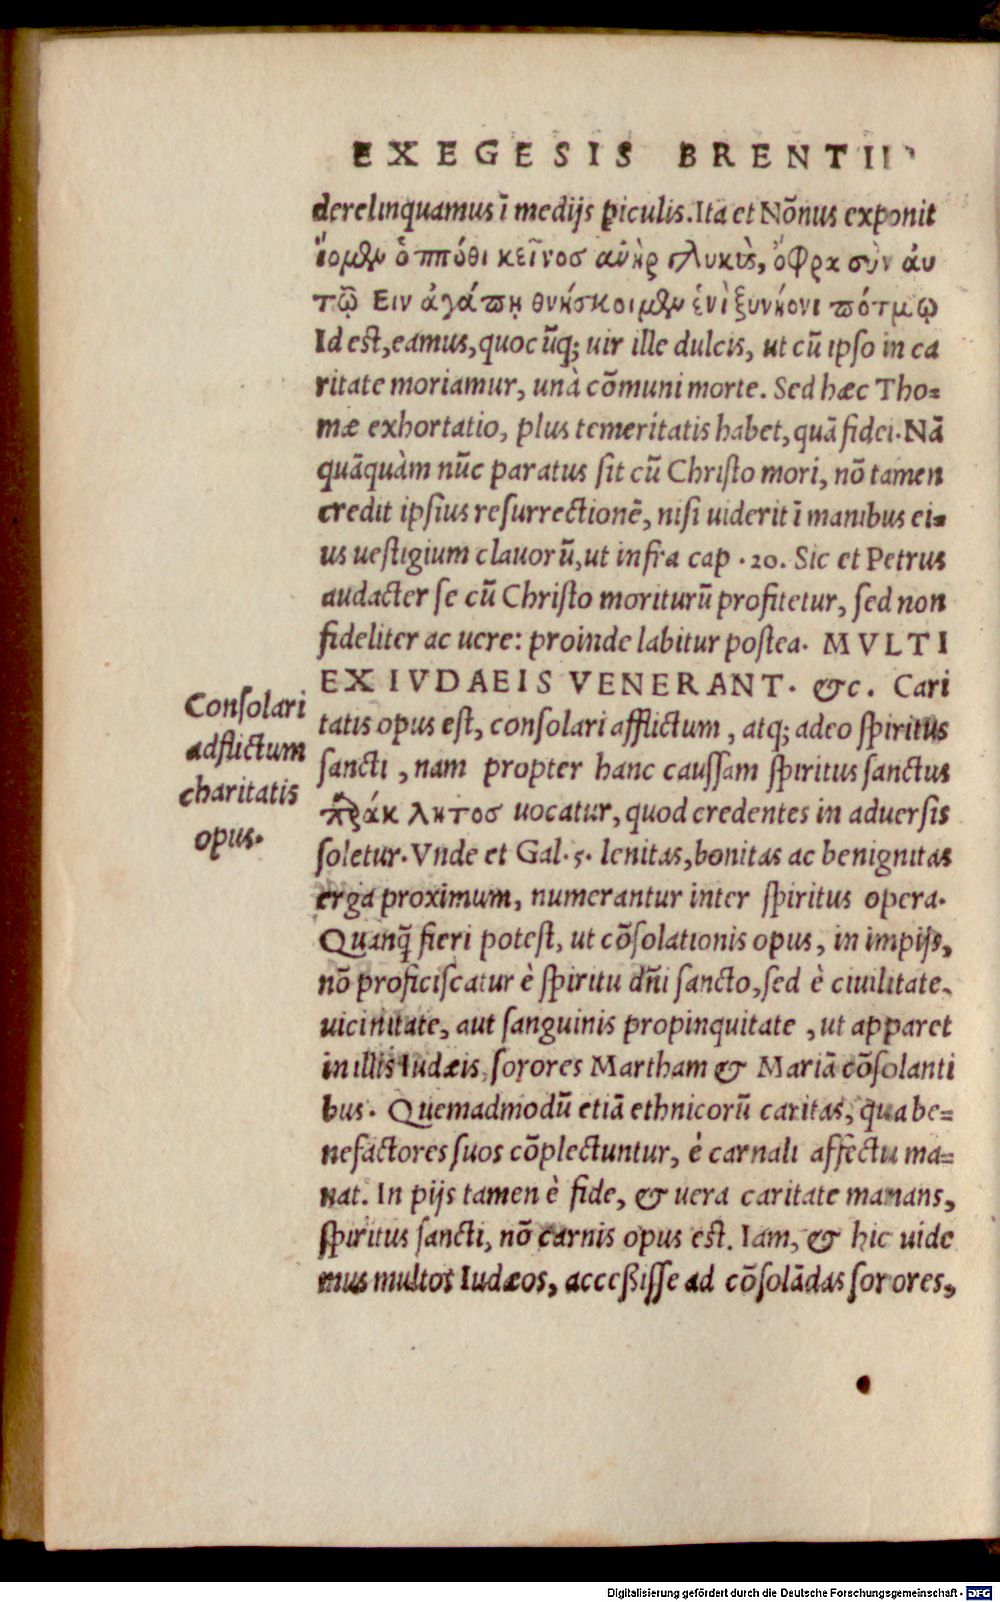 EXEGESIS BRENTII
derelinquamus ī medijs ꝑiculis. Ita et Nōnus exponit
ἴομεν ὁππόθι κεῖνος ἀνὴρ γλυκὺς, ὄφρα σὺν ἀυ
τῷ Ειν ἀγάπῃ θνήσκοιμεν ἑνὶ ξυνήονι πότμῳ
Id est, eamus, quocūq; uir ille dulcis, ut cū ipso in ca
ritate moriamur, unà cōmuni morte. Sed hæc Tho=
mæ exhortatio, plus temeritatis habet, quā fidei. Nā
quāquàm nūc paratus sit cū Christo mori, nō tamen
credit ipsius resurrectionē, nisi uiderit ī manibus ei=
us uestigium clauorū, ut infra cap. 20. Sic et Petrus
audacter se cū Christo moriturū profitetur, sed non
fideliter ac uere: proinde labitur postea. MVLTI
EX IVDAEIS VENERANT. &c. Cari
tatis opus est, consolari afflictum, atq; adeo spiritus
sancti, nam propter hanc caussam spiritus sanctus
παράκλητος uocatur, quod credentes in aduersis
soletur. Vnde et Gal. 5. lenitas, bonitas ac benignitas
erga proximum, numerantur inter spiritus opera.
Quanq̄ fieri potest, ut cōsolationis opus, in impijs,
nō proficiscatur è spiritu dñi sancto, sed è ciuilitate,
uicinitate, aut sanguinis propinquitate, ut apparet
in illis Iudæis, sorores Martham & Mariā cōsolanti
bus. Quemadmodū etiā ethnicorū caritas, qua be=
nefactores suos cōplectuntur, è carnali affectu ma=
nat. In pijs tamen è fide, & uera caritate manans,
spiritus sancti, nō carnis opus est. Iam, & hic uide
mus multos Iudæos, acceßisse ad cōsolādas sorores,
Consolari
adflictum
charitatis
opus.
Digitalisierung gefördert durch die Deutsche Forschungsgemeinschaft - DFG